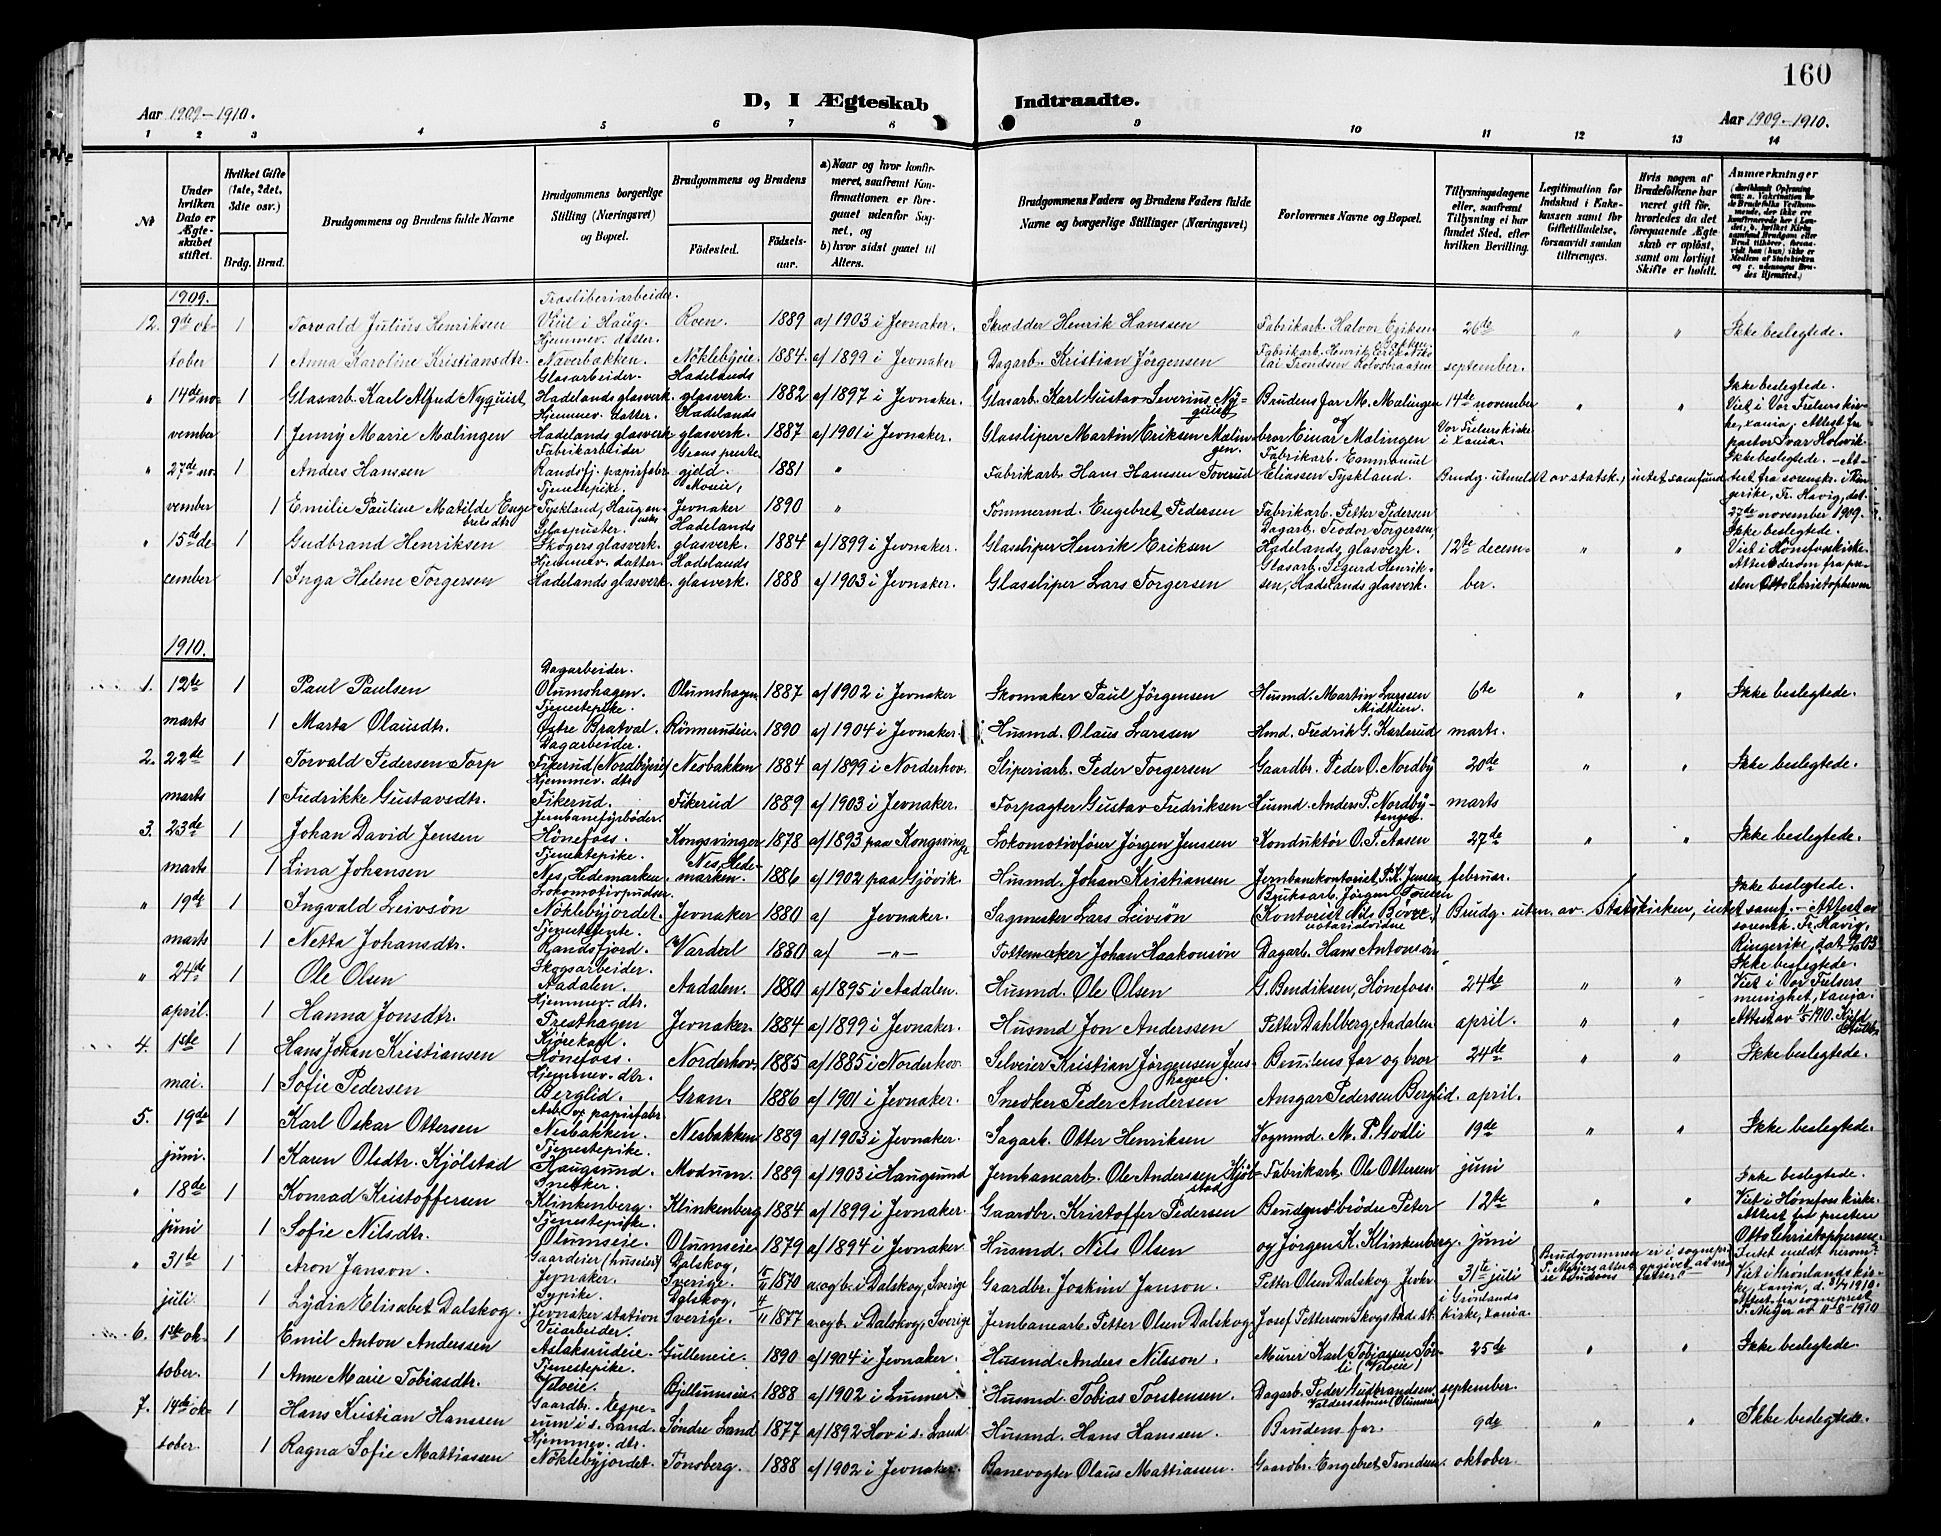 160
D, I Ægteskab Indtraadte.
Aar 1909-1910. Aar 1909-1910.
1 2 3 4 5 6 7 8 9 10 11 12 13 14
No
Under hvilken Dato er Ægteskabet stiftet.
Hvilket Gifte (1ste, 2det, 3die osv.)
Brdg. Brud.
Brudgommens og Brudens fulde Navne
Brudgommens borgerlige Stilling (Næringsvei) og Bopæl.
Brudgommens og Brudens
Fødested. Fødselsaar.
a) Naar og hvor konfirmeret, saafremt Konfirmationen er foregaaet udenfor Sognet, og
b) hvor sidst gaaet til Alters.
Brudgommens Faders og Brudens Faders fulde Navne og borgerlige Stillinger (Næringsvei)
Forlovernes Navne og Bopæl.
Tillysningsdagene eller, saafremt Tillysning ei har fundet Sted, efter hvilken Bevilling.
Legitimation for Indskud i Enkekassen samt for Giftetilladelse, forsaavidt saadan tiltrænges.
Hvis nogen af Brudefolkene har været gift før, hvorledes da det foregaaende Ægteskab er opløst, samt om lovligt Skifte er holdt.
Anmærkninger
1909.
12. 9de ok- 1 Torvald Julius Henriksen Træsliberiarbeider. Veiil i Haug. Roen. 1889 a/ 1903 i Jevnaker. Skrædder Henrik Hanssen Fabrikarb. Halvor Eriksen 26de " " Ikke beslegtede.
tober 1 Anna Karoline Kristiansdtr. Hjemmev. datter. Næverbakken. Nöklebyeie. 1884. a/ 1899 i Jevnaker Dagarb. Kristian Jörgensen september.
" 14de no- 1 Glasarb. Karl Alfred Nyquist Glasarbeider. Hadelands glasverk. Hadelands glasverk. 1882 a/ 1897 i Jevnaker. Glasarb. Karl Gustav Severins Nyquist Brudens far M. Malingen 14de november " " Ikke beslegtede. Viet i Vor Frelsers kirke, Xania, Attest fra pastor Ivar Holsvik
vember 1 Jenny Marie Malingen Hjemmev. datter. Hadelands glasverk Hadelands glasverk. 1887 a/ 1901 i Jevnaker. Glassliper Martin Eriksen Malingen. og bror Einar Malingen Vor Frelserskirke i Xania.
" 27de no- 1 Anders Hanssen Fabrikarbeider Randsfj. papirfabr. Grans prestegjeld. 1881 " Fabrikarb. Hans Hanssen Toverud Fabrikarb. Emmanuel Eliassen Tyskland. Brudg. utmeldt av statsk., intet samfund Ikke beslegtede. - Attest fra sorenskr. i Ringerike, Fr. Havig, dat. 27de november 1909.
vember 1 Emilie Pauline Matilde Engebretsdtr Tjenestepike. Tyskland, Haugen Moeie, Jevnaker 1890 " Tømmermd. Engebret Pedersen Fabrikarb. Petter Pedersen
" 15de de- 1 Gudbrand Henriksen Glaspuster. Skogers glasverk. Hadelands glasverk. 1884 a/ 1899 i Jevnaker. Glassliper Henrik Eriksen Dagarb. Teodor Torgersen, Hadelands glasverk. 12te decem- " " Ikke beslegtede. Viet i Hönefoss kirke. Attest derom fra presten Otto Christophersen
cember 1 Inga Helene Torgersen Hjemmev. datter. Hadelands glasverk Hadelands glasverk. 1888 a/ 1903 i Jevnaker. Glassliper Lars Torgersen Glasarb. Sigurd Henriksen, Hadelands glasverk. ber.
1910.
1. 12te 1 Paul Paulsen Dagarbeider. Olumshagen. Olumshagen 1887 a/ 1902 i Jevnaker Skomaker Paul Jörgensen Husmd. Martin Larssen Midtlien. 6te " " Ikke beslegtede.
marts 1 Marta Olausdtr. Tjenestepike. Østre Bratval. Rönnerudeie. 1890 a/ 1904 i Jevnaker. Husmd. Olaus Larssen Hmd. Fredrik G. Karlsrud marts.
2. 22de 1 Torvald Pedersen Torp Dagarbeider. Fikerud (Nordbyeie) Nesbakken 1884 a/ 1899 i Norderhov. Sliperiarb. Peder Torgersen Gaardbr. Peder O. Nordby 20de " " Ikke beslegtede.
marts 1 Fredrikke Gustavsdtr. Hjemmev. dtr. Fikerud. Fikerud 1889 a/ 1903 i Jevnaker. Forpagter Gustav Fredriksen Husmd. Anders P. Nordbytangen marts
3. 23de 1 Johan David Jensen Jernbanefyrböder. Hönefoss. Kongsvinger 1878 a/ 1893 paa Kongsvinger Lokomotivförer Jörgen Jenssen Konduktör O. T. Aasen 27de " " Ikke beslegtede.
marts 1 Lina Johansen Tjenestepike. Nes, Hedemarken. Nes, Hedemarken. 1886 a/ 1902 paa Gjövik. Husmd. Johan Kristiansen Jernbanekontorist P. K. Jensen februar.
" 19de 1 Ingvald Leivsön Lokomotivpudser. Nöklebyjordet. Jevnaker 1880 a/ Jevnaker. Sagmester Lars Leivsön Bruksarb. Jörgen Toresen (Kontorist Nils Börre) Brudg. utm. av Statskirken, intet samf. Ikke beslegtede. - Attest av sorensk. Fr. Havig, Ringerike, dat.
marts 1 Netta Johansdtr. Tjenestejente. Randsfjord. Vardal 1880 a/ -"- Pottemaker Johan Haakonsön Dagarb. Hans Antonsön
" 24de 1 Ole Olsen Skogsarbeider. Aadalen. Aadalen. 1880 a/ 1895 i Aadalen. Husmd. Ole Olsen G. Bendiksen, Hönefoss. 24de " " Ikke beslegtede. Viet i Vor Frelsers menighet, Xania.
april. 1 Hanna Jonsdtr. Hjemmev. dtr. Presthagen Jevnaker. 1884 a/ 1899 i Jevnaker. Husmd Jon Anderssen Petter Dahlberg, Aadalen april. " " Attest av 11/5 1910.
4. 1ste 1 Hans Johan Kristiansen Kjörekarl. Hönefoss. Norderhov. 1885 a/ 1885 i Norderhov. Selveier Kristian Jörgensen Jenshagen. Brudens far og bror 24de " " Ikke beslegtede.
mai. 1 Sofie Pedersen Hjemmev. dtr. Berglid. Gran. 1886 a/ 1901 i Jevnaker. Snedker Peder Andersen Ansgar Pedersen Berglid. april.
5. 19de 1 Karl Oskar Ottersen Arb. v. papirfabr. Nesbakken. Nesbakken 1889 a/ 1903 i Jevnaker. Sagarb. Otter Henriksen Sognmd. M. P. Godli 19de " " Ikke beslegtede.
juni. 1 Karen Olsdtr. Kjölstad Tjenestepike. Haugsund. Modum. 1889 a/ 1903 i Haugsund Jernbanearb. Ole Anderssen Kjölstad Fabrikarb. Ole Ottersen juni
" 18de 1 Konrad Kristoffersen Snekker. Klinkenberg. Klinkenberg 1884 a/ 1899 i Jevnaker. Gaardbr. Kristoffer Pedersen Brudgms brödre Peter 12te " " Ikke beslegtede. Viet i Hönefoss kirke. Attest fra presten Otto Christophersen.
juni 1 Sofie Nilsdtr. Tjenestepike. Olumseie. Olumseie 1879 a/ 1894 i Jevnaker Husmd. Nils Olsen og Jörgen K. Klinkenberg. juni
" 31te 1 Aron Janson. Gaardeier (huseier) Jevnaker. Dalskog, Sverige. 1870 a. og b. i Dalskog, Sverige Gaardbr. Joakim Janson. Petter Olsen Dalskog 31te juli
juli 1 Lydia Elisabet Dalskog. Sypike. Jevnaker station Dalskog, Sverige. 1877 a. og b. i Dalskog, Sverige Jernbanearb. Petter Olsen Dalskog Josef Petterson Skogstad. i Grönlands kirke, Xania. Viet i Grönlands kirke, Xania, d. 31/7 1910. Attest fra sogneprest P. Meyer av 11-8-1910
6. 1ste ok- 1 Emil Anton Anderssen Veiarbeider. Aslaksrudeie. Gulleneie. 1890 a/ 1904 i Jevnaker. Husmd. Anders Nilsson. Murer Karl Tobiassen Sörli (Veloeie) 25de " " Ikke beslegtede.
tober. 1 Anne Marie Tobiasdtr. Tjenestepike. Veloeie. Bjellumseie. 1888 a/ 1902 i Lunner. Husmd. Tobias Torstensen. Dagarb. Peder Gudbrandsen, september.
7. 14de ok- 1 Hans Kristian Hanssen Gaardbr. Hesperum i s. Land. Söndre Land 1877 a/ 1892 Hov i s. Land Husmd. Hans Hansen. Brudens far. 9de " " Ikke beslegtede.
tober. 1 Ragna Sofie Mattiassen Hjemmev. dtr. Nöklebyjordet. Tönsberg. 1888 a/ 1902 i Jevnaker. Banevogter Olaus Mattiassen. Gaardbr. Engebret Trondsen. oktober.